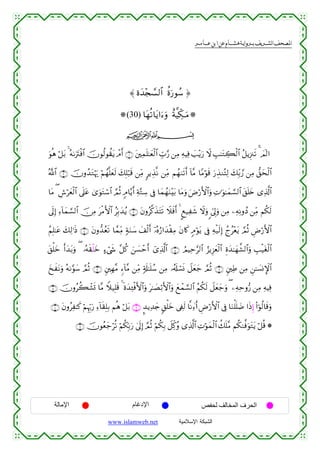 المصحف الشريف برواية هشام عن ابن عامر
﴿ سُورَةُ ٱلسَّجْدَةِ ﴾
* مَكِّيَّةٌ وَءَايَاتُهَا (30) *
بِسْمِ ٱللَّهِ ٱلرَّحْمَٰنِ ٱلرَّحِيمِ
الٓمٓ ۝ تَنزِيلُ ٱلْكِتَٰبِ لَا رَيْبَ فِيهِ مِن رَّبِّ ٱلْعَٰلَمِينَ ۝ أَمْ يَقُولُونَ ٱفْتَرَىٰهُ بَلْ هُوَ
ٱلْحَقُّ مِن رَّبِّكَ لِتُنذِرَ قَوْمًا مَّآ أَتَىٰهُم مِّن نَّذِيرٍ مِّن قَبْلِكَ لَعَلَّهُمْ يَهْتَدُونَ ۝ ٱللَّهُ
ٱلَّذِي خَلَقَ ٱلسَّمَٰوَٰتِ وَٱلْأَرْضَ وَمَا بَيْنَهُمَا فِي سِتَّةِ أَيَّامٍ ثُمَّ ٱسْتَوَىٰ عَلَى ٱلْعَرْشِ ۖ مَا
لَكُم مِّن دُونِهِۦ مِن وَلِيٍّ وَلَا شَفِيعٍ ۚ أَفَلَا تَتَذَكَّرُونَ ۝ يُدَبِّرُ ٱلْأَمْرَ مِنَ ٱلسَّمَآءِ إِلَى
ٱلْأَرْضِ ثُمَّ يَعْرُجُ إِلَيْهِ فِي يَوْمٍ كَانَ مِقْدَارُهُۥٓ أَلْفَ سَنَةٍ مِّمَّا تَعُدُّونَ ۝ ذَٰلِكَ عَٰلِمُ
ٱلْغَيْبِ وَٱلشَّهَٰدَةِ ٱلْعَزِيزُ ٱلرَّحِيمُ ۝ ٱلَّذِيٓ أَحْسَنَ كُلَّ شَيْءٍ خَلْقَهُۥ ۖ وَبَدَأَ خَلْقَ
ٱلْإِنسَٰنِ مِن طِينٍ ۝ ثُمَّ جَعَلَ نَسْلَهُۥ مِن سُلَٰلَةٍ مِّن مَّآءٍ مَّهِينٍ ۝ ثُمَّ سَوَّىٰهُ وَنَفَخَ
فِيهِ مِن رُّوحِهِۦ ۖ وَجَعَلَ لَكُمُ ٱلسَّمْعَ وَٱلْأَبْصَٰرَ وَٱلْأَفْـِٔدَةَ ۚ قَلِيلًا مَّا تَشْكُرُونَ ۝
وَقَالُوٓا۟ إِذَا ضَلَلْنَا فِي ٱلْأَرْضِ أَءِنَّا لَفِي خَلْقٍ جَدِيدٍۭ ۝ بَلْ هُم بِلِقَآءِ رَبِّهِمْ كَٰفِرُونَ ۝
* قُلْ يَتَوَفَّىٰكُم مَّلَكُ ٱلْمَوْتِ ٱلَّذِي وُكِّلَ بِكُمْ ثُمَّ إِلَىٰ رَبِّكُمْ تُرْجَعُونَ ۝
الحرف المخالف لحفص الإدغام الإمالة
الشبكة الإسلامية www.islamweb.net